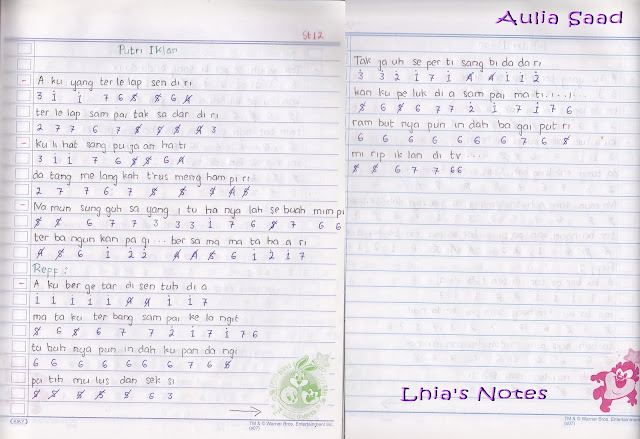 ST12
Putri Iklan
- A ku yang ter le lap sen di ri
3 i i 7 6 5̸ 5̸ 6 4̸
ter le lap sam pai tak sa dar di ri
2 7 7 6 7 5̸ 5̸ 5̸ 4̸ 3
- Ku li hat sang pu ja an ha ti
3 1 i 7 6 5̸ 5̸ 6 4̸
da tang me lang kah t'rus meng ham pi ri
2 7 7 6 7 5̸ 5̸ 5̸ 4̸ 5̸
- Na mun sung guh sa yang i tu ha nya lah se buah mim pi
5̸ 5̸ 6 7 7 3 3 3 1 7 6 5̸ 7 6 6
ter ba ngun kan pa gi ... ber sa ma ma ta ha a ri
4̸ 5̸ 6 i 2 2 4̸ 4̸ 5̸ 6 i 2 i 7
Reff :
- A ku ber ge tar di sen tuh di a
i i i i i 4̸ 4̸ i i 7
ma ta ku ter bang sam pai ke la ngit
5̸ 6 5̸ 6 7 7 2 i 7 i 7 6
tu buh nya pun in dah ku pan da ngi
6 6 6 6 6 6 6 7 6 5̸
pu tih mu lus dan sek si
5̸ 5̸ 5̸ 5̸ 5̸ 6 3
TM & © Warner Bros. Entertainment Inc.
(s07)
Aulia Saad
Tak ja uh se per ti sang bi da da ri
3 3 2 i 7 i 4̸ 4̸ i i 2
kan ku pe luk di a sam pai ma ti.. i.. i...
5̸ 6 5̸ 6 7 7 2 i 7 i 7 6
ram but nya pun in dah ba gai put ri
6 6 6 6 6 6 6 7 6 5̸
mi rip ik lan di tv ...
5̸ 5̸ 6 7 7 6 6
Lhia's Notes
TM & © Warner Bros. Entertainment Inc.
(s07)